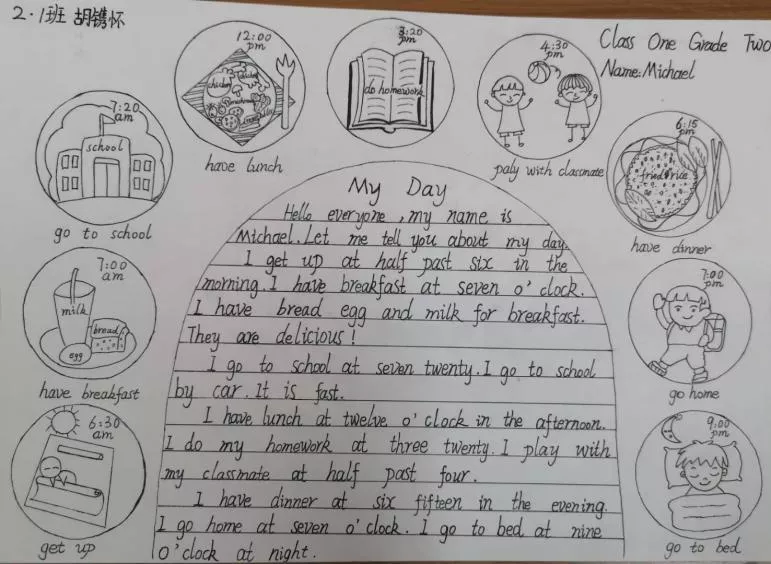 2·1班 胡镌怀
Class One Grade Two
Name: Michael
12:00
pm
chicken
mushroom
have lunch
3:20
pm
do homework
4:30
pm
paly with classmate
7:20
am
school
go to school
6:15
pm
fried rice
have dinner
7:00
am
milk
bread
egg
have breakfast
7:00
pm
go home
6:30
am
get up
9:00
pm
go to bed
My Day
Hello everyone, my name is
Michael. Let me tell you about my day.
I get up at half past six in the
morning. I have breakfast at seven o'clock.
I have bread egg and milk for breakfast.
They are delicious!
I go to school at seven twenty. I go to school
by car. It is fast.
I have lunch at twelve o'clock in the afternoon.
I do my homework at three twenty. I play with
my classmate at half past four.
I have dinner at six fifteen in the evening.
I go home at seven o'clock. I go to bed at nine
o'clock at night.